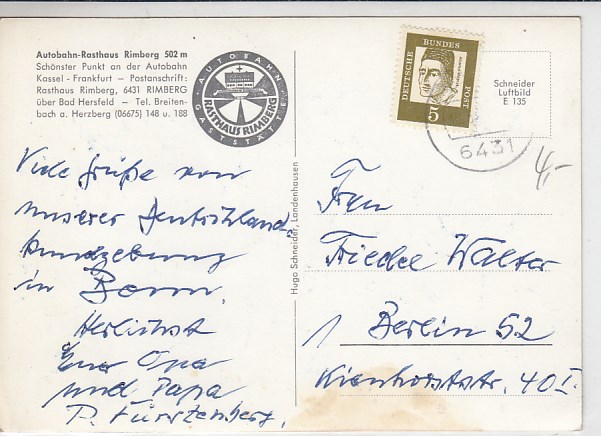 Autobahn-Rasthaus Rimberg 502 m
Schönster Punkt an der Autobahn
Kassel - Frankfurt — Postanschrift:
Rasthaus Rimberg, 6431 RIMBERG
über Bad Hersfeld — Tel. Breiten-
bach a. Herzberg (06675) 148 u. 188
AUTOBAHN
RASTHAUS RIMBERG
GASTSTÄTTE
DEUTSCHE BUNDES POST
5
6431
Schneider
Luftbild
E 135
4,-
Viele Grüße von
unserer Deutschland
kundgebung
in Bonn,
Herlichst
Euer Opa
und Papa
P. Fürstenberg,
Hugo Schneider, Landenhausen
Frau
Friedel Walter
1 Berlin 52
Kienhorststr. 40 I.